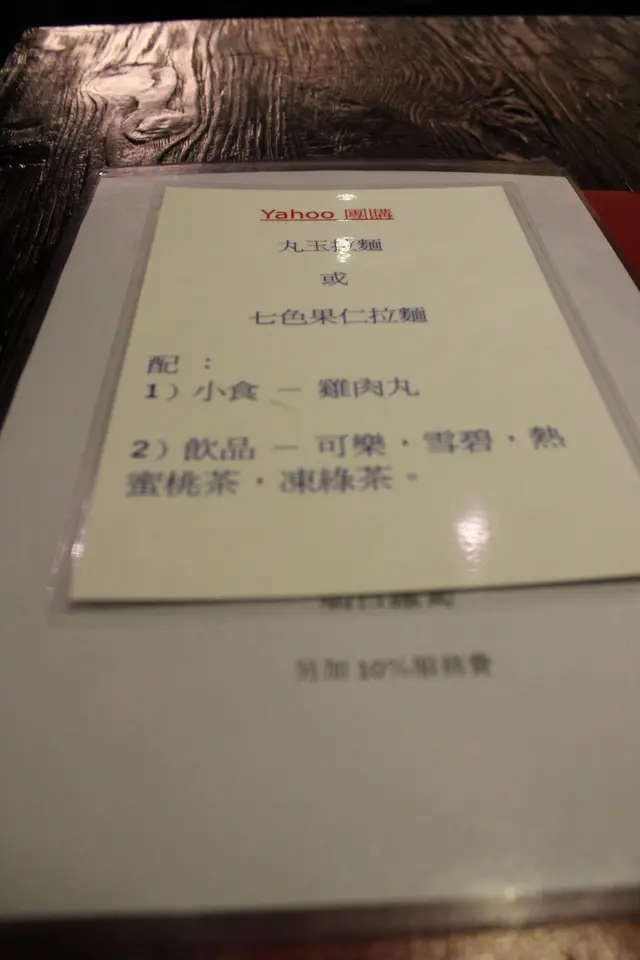 Yahoo 團購
丸玉拉麵
或
七色果仁拉麵
配 :
1) 小食 － 雞肉丸
2) 飲品 － 可樂，雪碧，熱
蜜桃茶，凍綠茶。
另加 10%服務費